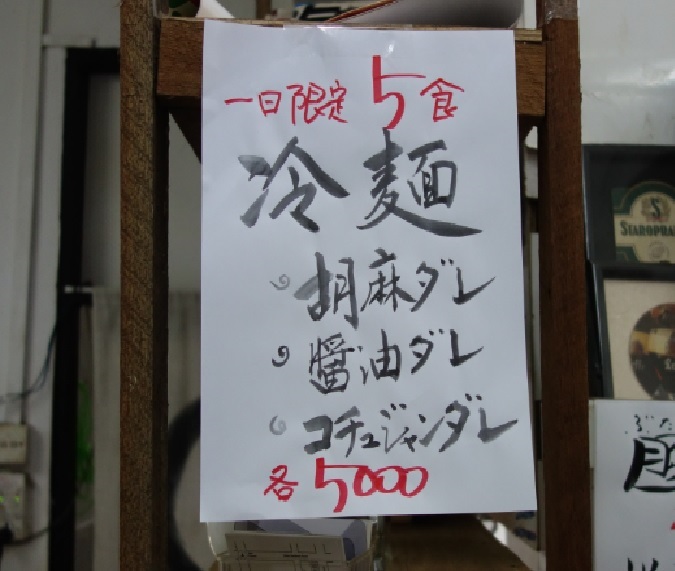 一日限定5食
冷麺
胡麻ダレ
醤油ダレ
コチュジャンダレ
各5000
S
STAROPRA
ぶた